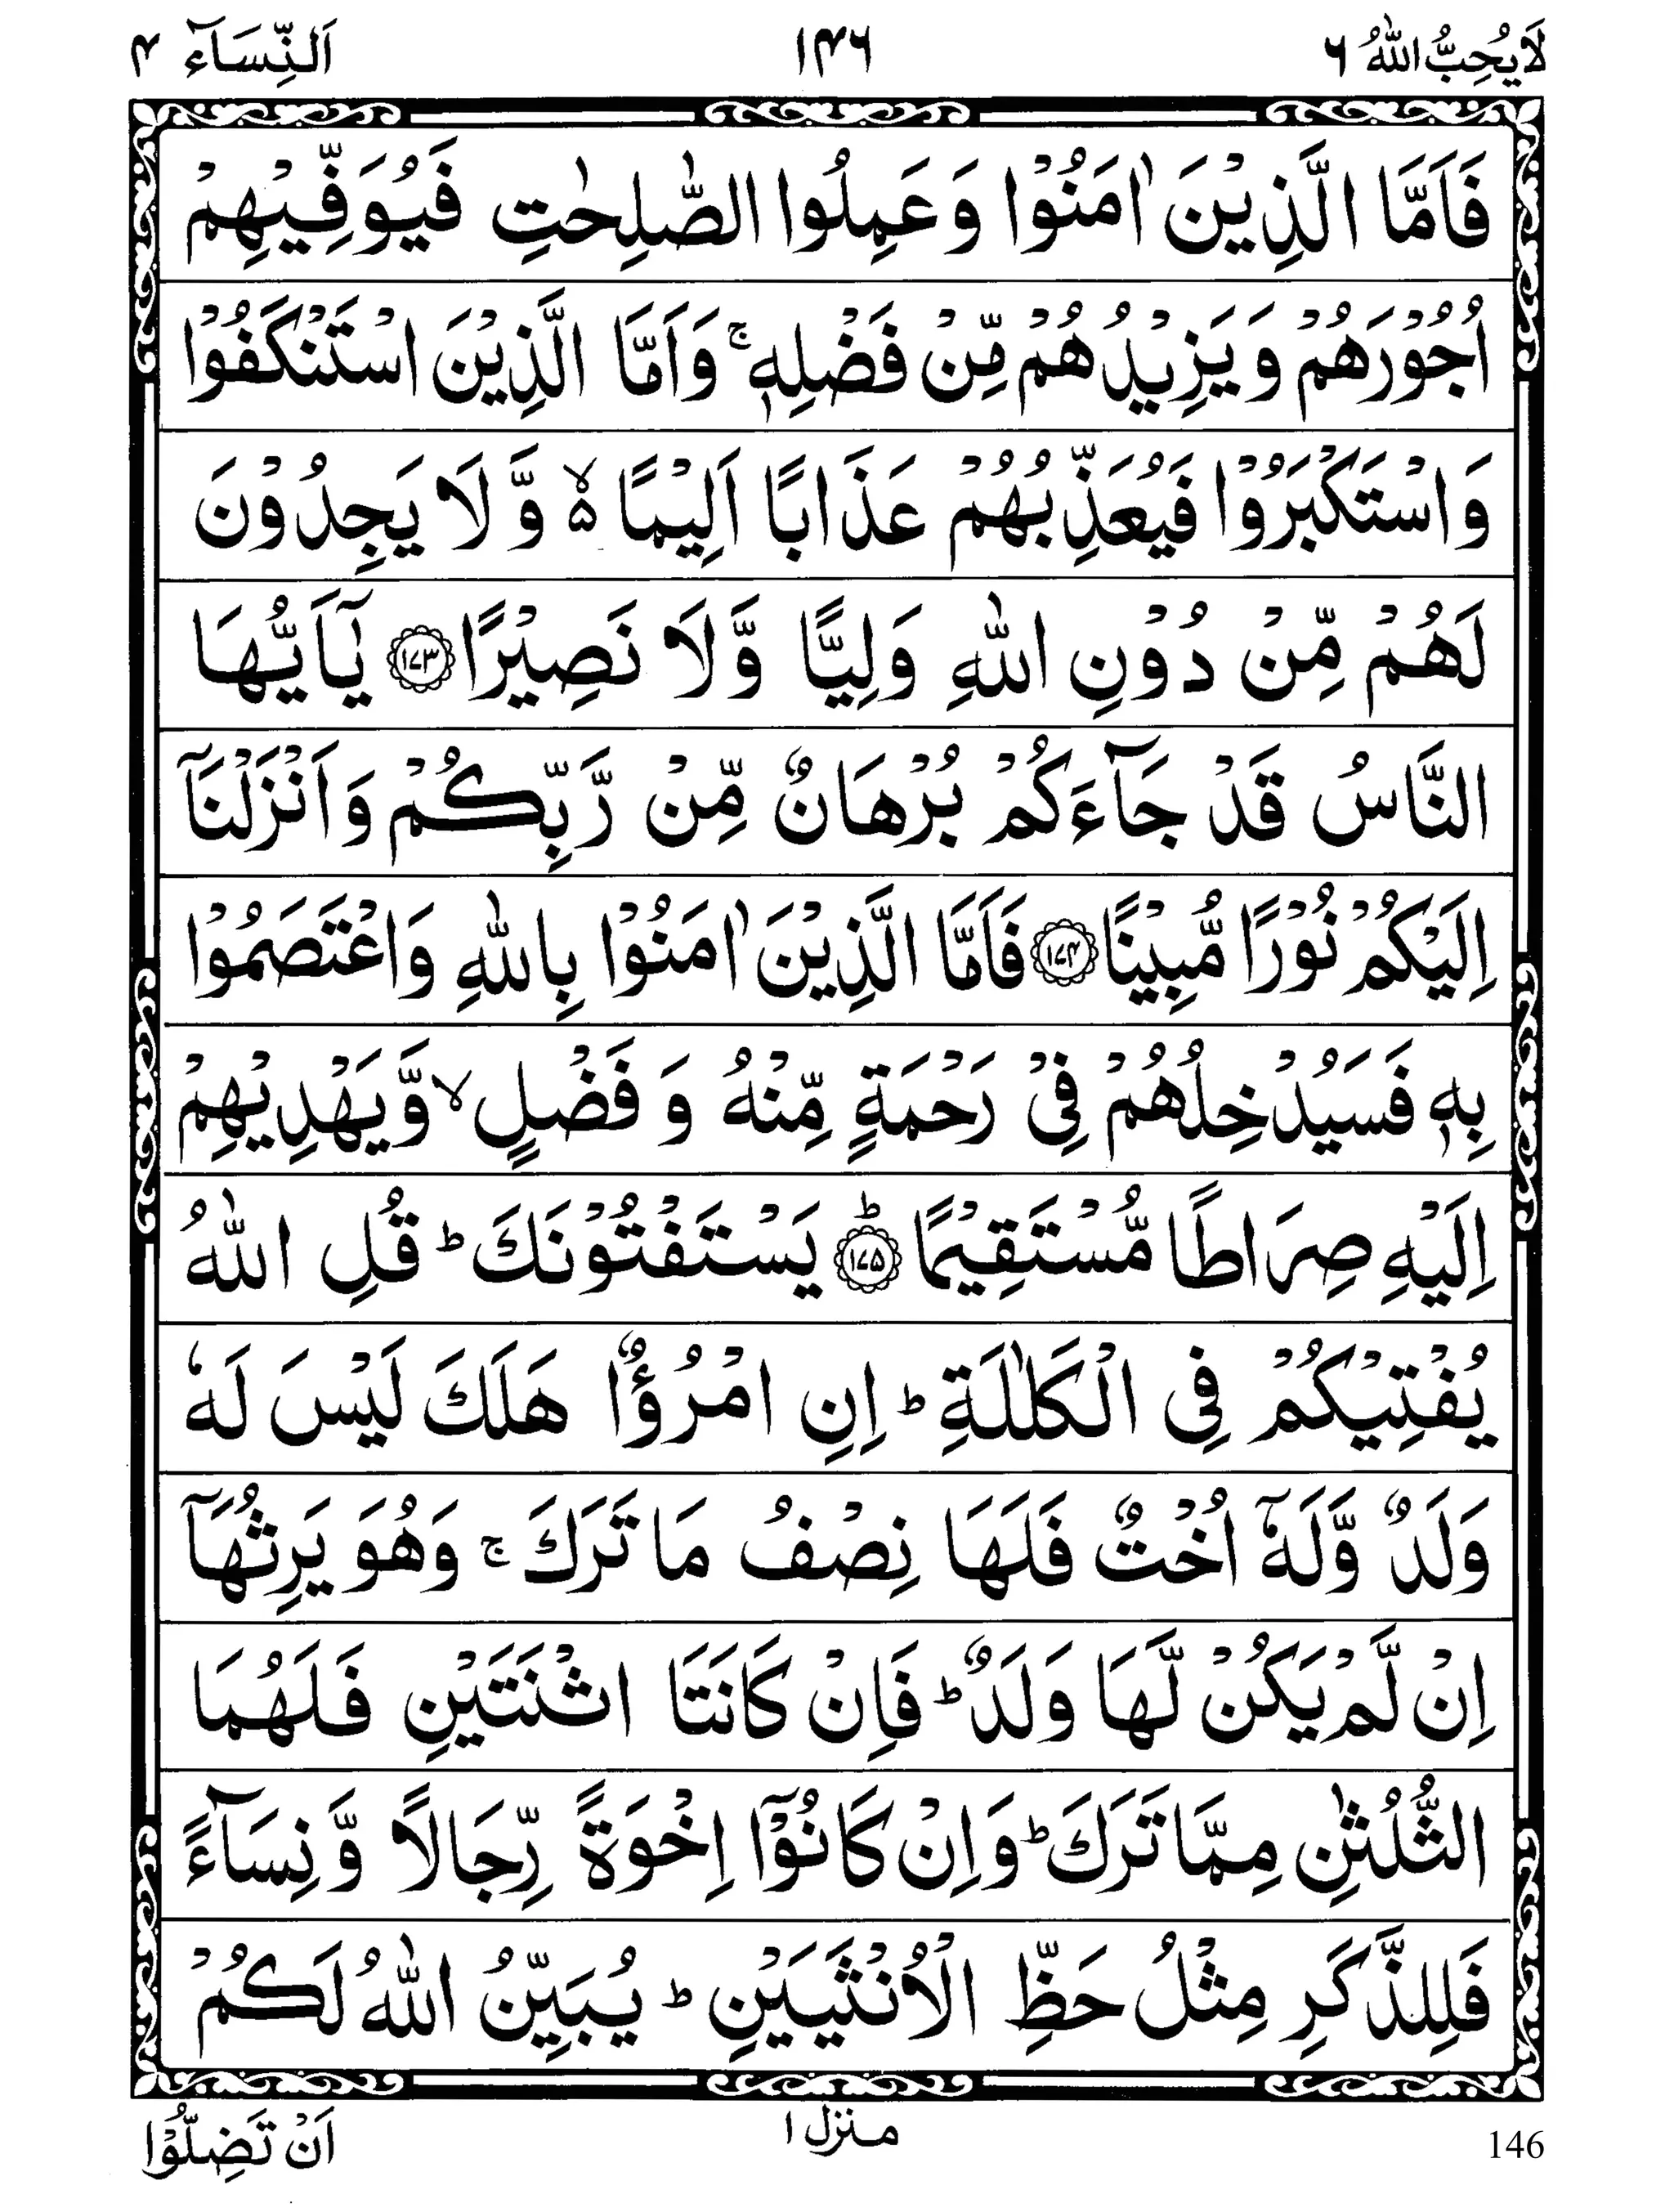 لَا يُحِبُّ اللّٰهُ ٦ ١٣٦ اَلنِّسَآء ٣
فَاَمَّا الَّذِيْنَ اٰمَنُوْا وَ عَمِلُوا الصّٰلِحٰتِ فَيُوَفِّيْهِمْ
اُجُوْرَهُمْ وَ يَزِيْدُهُمْ مِّنْ فَضْلِهٖ ۚ وَ اَمَّا الَّذِيْنَ اسْتَنْكَفُوْا
وَ اسْتَكْبَرُوْا فَيُعَذِّبُهُمْ عَذَابًا اَلِيْمًا ۙ۵ وَّ لَا يَجِدُوْنَ
لَهُمْ مِّنْ دُوْنِ اللّٰهِ وَلِيًّا وَّ لَا نَصِيْرًا ﴿۱۷۳﴾ يٰۤاَيُّهَا
النَّاسُ قَدْ جَآءَكُمْ بُرْهَانٌ مِّنْ رَّبِّكُمْ وَ اَنْزَلْنَاۤ
اِلَيْكُمْ نُوْرًا مُّبِيْنًا ﴿۱۷۴﴾ فَاَمَّا الَّذِيْنَ اٰمَنُوْا بِاللّٰهِ وَ اعْتَصَمُوْا
بِهٖ فَسَيُدْخِلُهُمْ فِيْ رَحْمَةٍ مِّنْهُ وَ فَضْلٍ ۙ وَّ يَهْدِيْهِمْ
اِلَيْهِ صِرَاطًا مُّسْتَقِيْمًا ؕ﴿۱۷۵﴾ يَسْتَفْتُوْنَكَ ؕ قُلِ اللّٰهُ
يُفْتِيْكُمْ فِي الْكَلٰلَةِ ؕ اِنِ امْرُؤٌا هَلَكَ لَيْسَ لَهٗ
وَلَدٌ وَّ لَهٗۤ اُخْتٌ فَلَهَا نِصْفُ مَا تَرَكَ ۚ وَ هُوَ يَرِثُهَاۤ
اِنْ لَّمْ يَكُنْ لَّهَا وَلَدٌ ؕ فَاِنْ كَانَتَا اثْنَتَيْنِ فَلَهُمَا
الثُّلُثٰنِ مِمَّا تَرَكَ ؕ وَ اِنْ كَانُوْۤا اِخْوَةً رِّجَالًا وَّ نِسَآءً
فَلِلذَّكَرِ مِثْلُ حَظِّ الْاُنْثَيَيْنِ ؕ يُبَيِّنُ اللّٰهُ لَكُمْ
146 منزل ١ اَنْ تَضِلُّوْا